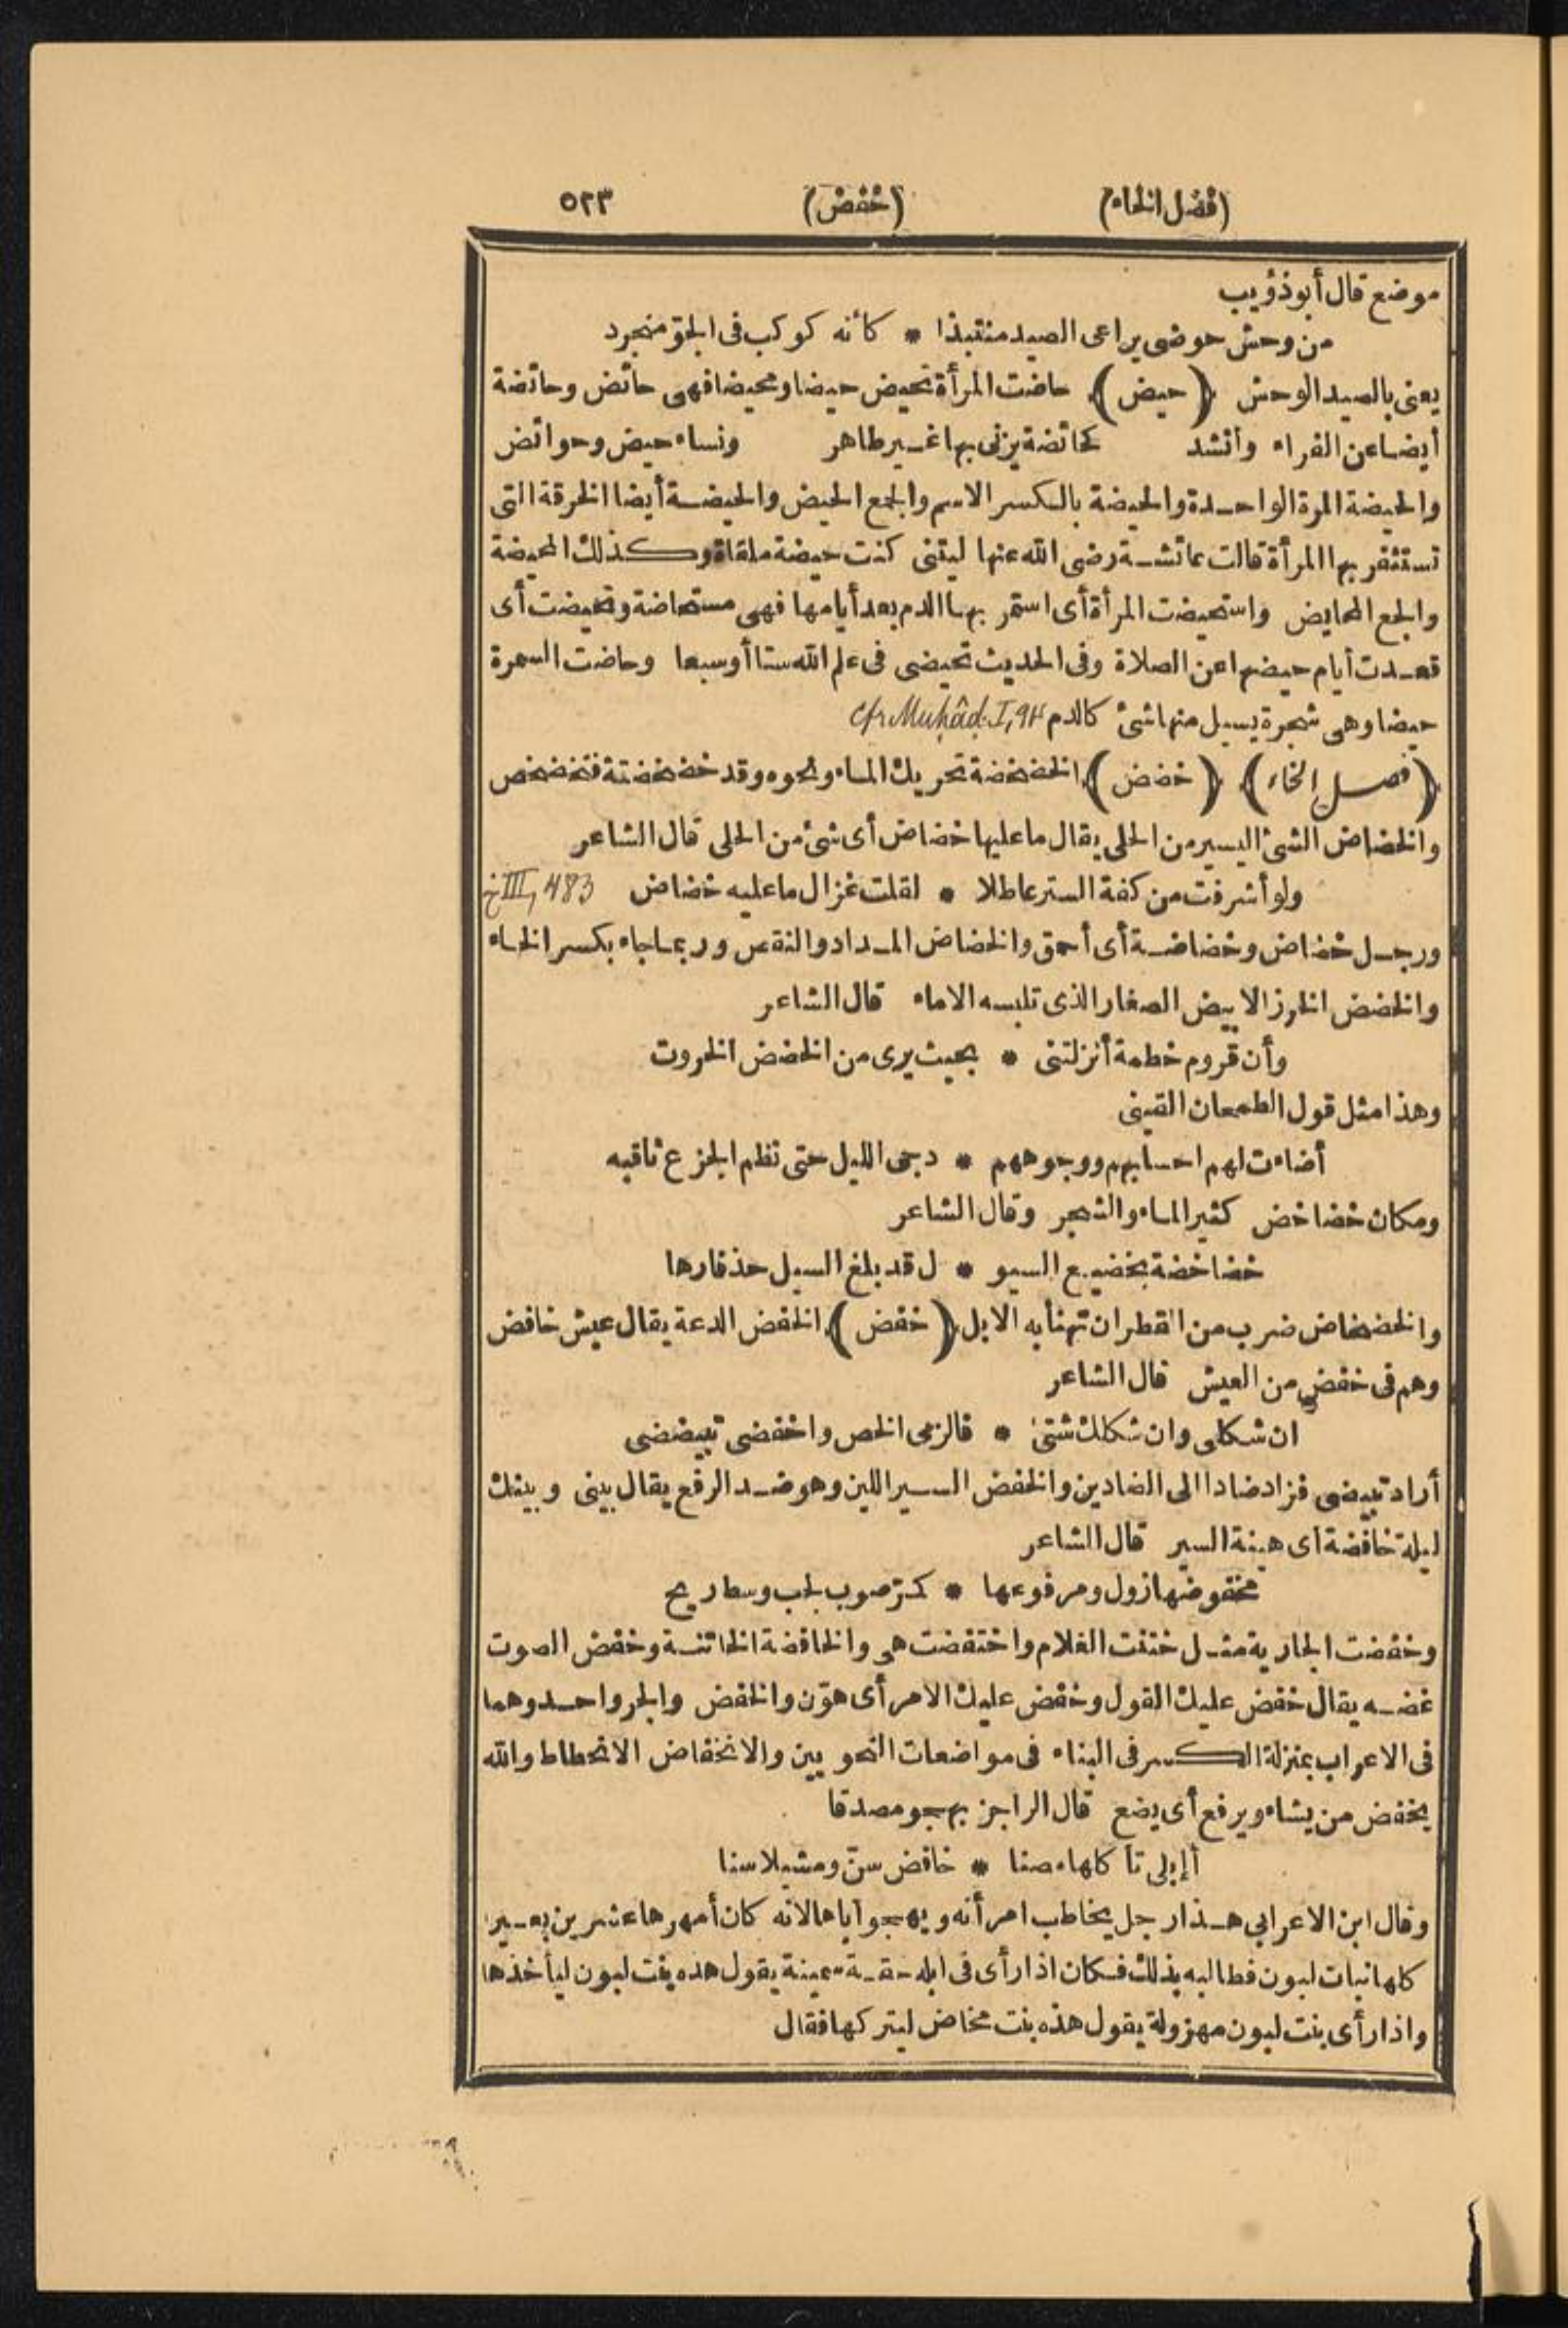 (فصل الخاء) (خفض) ٥٢٣
موضع قال أبو ذؤيب
من وحش حوضى يراعى الصيد منتبذا * كأنه كوكب فى الجوّ منجرد
يعنى بالصيد الوحش (حيض) حاضت المرأة تحيض حيضا ومحيضا فهى حائض وحائضة
أيضا عن الفراء وأنشد كحائضة يزنى بها غير طاهر ونساء حيض وحوائض
والحيضة المرة الواحدة والحيضة بالكسر الاسم والجمع الحيض والحيضة أيضا الخرقة التى
تستثفر بها المرأة قالت عائشة رضى الله عنها ليتنى كنت حيضة ملقاة وكذلك المحيضة
والجمع المحايض واستحيضت المرأة أى استمر بها الدم بعد أيامها فهى مستحاضة وتحيضت أى
قعدت أيام حيضها عن الصلاة وفى الحديث تحيضى فى علم الله ستا أو سبعا وحاضت السمرة
حيضا وهى شجرة يسيل منها شئ كالدم cfr Muḥâḍ. I, 94
(فصل الخاء) (خضض) الخضخضة تحريك الماء ونحوه وقد خضخضته فتخضخض
والخضاض الشئ اليسير من الحلى يقال ما عليها خضاض أى شئ من الحلى قال الشاعر
ولو أشرفت من كفة الستر عاطلا * لقلت غزال ما عليه خضاض خ III, 483
ورجل خضاض وخضاضة أى أحمق والخضاض المداد والنقس وربما جاء بكسر الخاء
والخضض الخرز الابيض الصغار الذى تلبسه الاماء قال الشاعر
وأن قروم خطمة أنزلتنى * بحيث يرى من الخضض الخروت
وهذا مثل قول الطمحان القينى
أضاءت لهم احسابهم ووجوههم * دجى الليل حتى نظم الجزع ثاقبه
ومكان خضاخض كثير الماء والشجر وقال الشاعر
خضاخضة بخضيع السيو * ل قد بلغ السيل حذفارها
والخضخاض ضرب من القطران تهنأ به الابل (خفض) الخفض الدعة يقال عيش خافض
وهم فى خفض من العيش قال الشاعر
ان شكلى وان شكلك شتى * فالزمى الخص واخفضى تبيضضى
أراد تبيضى فزاد ضادا الى الضادين والخفض السير اللين وهو ضد الرفع يقال بينى وبينك
ليلة خافضة أى هينة السير قال الشاعر
مخفوضها زول ومرفوعها * كمرّ صوب لجب وسط ريح
وخفضت الجارية مثل ختنت الغلام واختفضت هى والخافضة الخاتنة وخفض الصوت
غضه يقال خفض عليك القول وخفض عليك الامر أى هوّن والخفض والجر واحد وهما
فى الاعراب بمنزلة الكسر فى البناء فى مواضعات النحويين والانخفاض الانحطاط والله
يخفض من يشاء ويرفع أى يضع قال الراجز يهجو مصدقا
أإبلى تأكلها مصنا * خافض سنّ ومشيلا سنا
وقال ابن الاعرابى هذا رجل يخاطب امرأته ويهجو أباها لانه كان أمهرها عشرين بعيرا
كلها بنات لبون فطالبه بذلك فكان اذا رأى فى ابله حقة سمينة يقول هذه بنت لبون ليأخذها
واذا رأى بنت لبون مهزولة يقول هذه بنت مخاض ليتركها فقال